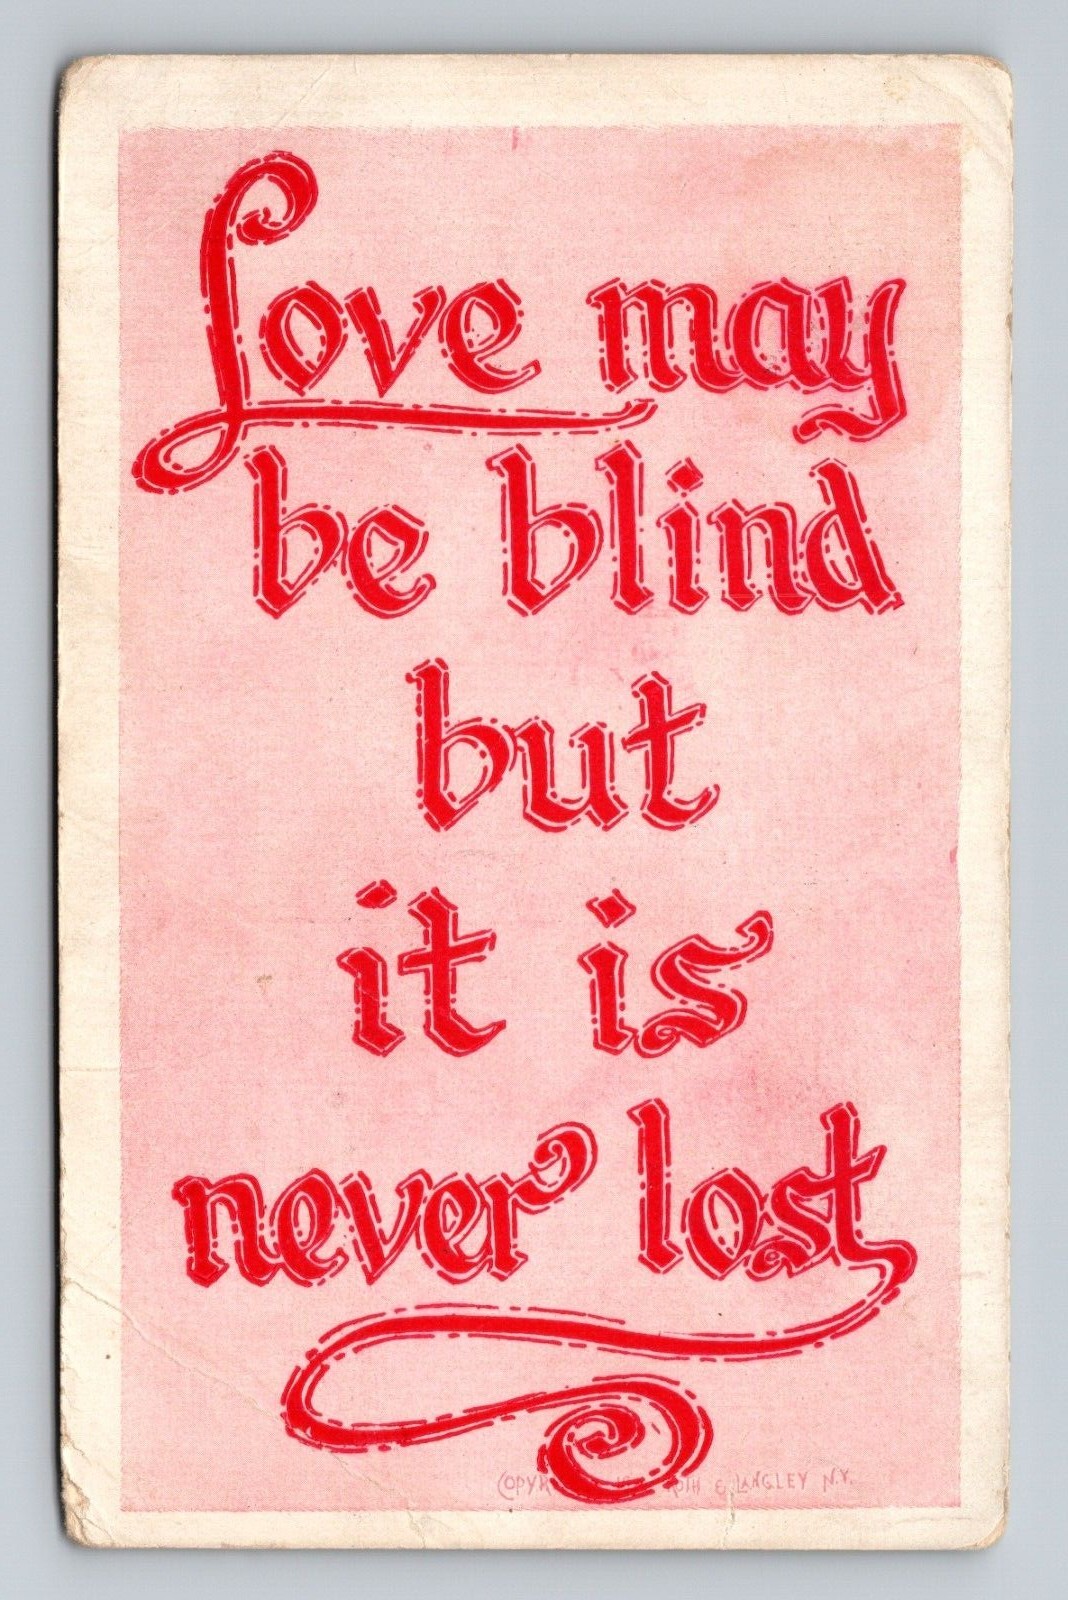 Love may
be blind
but
it is
never lost
& LANGLEY N.Y.